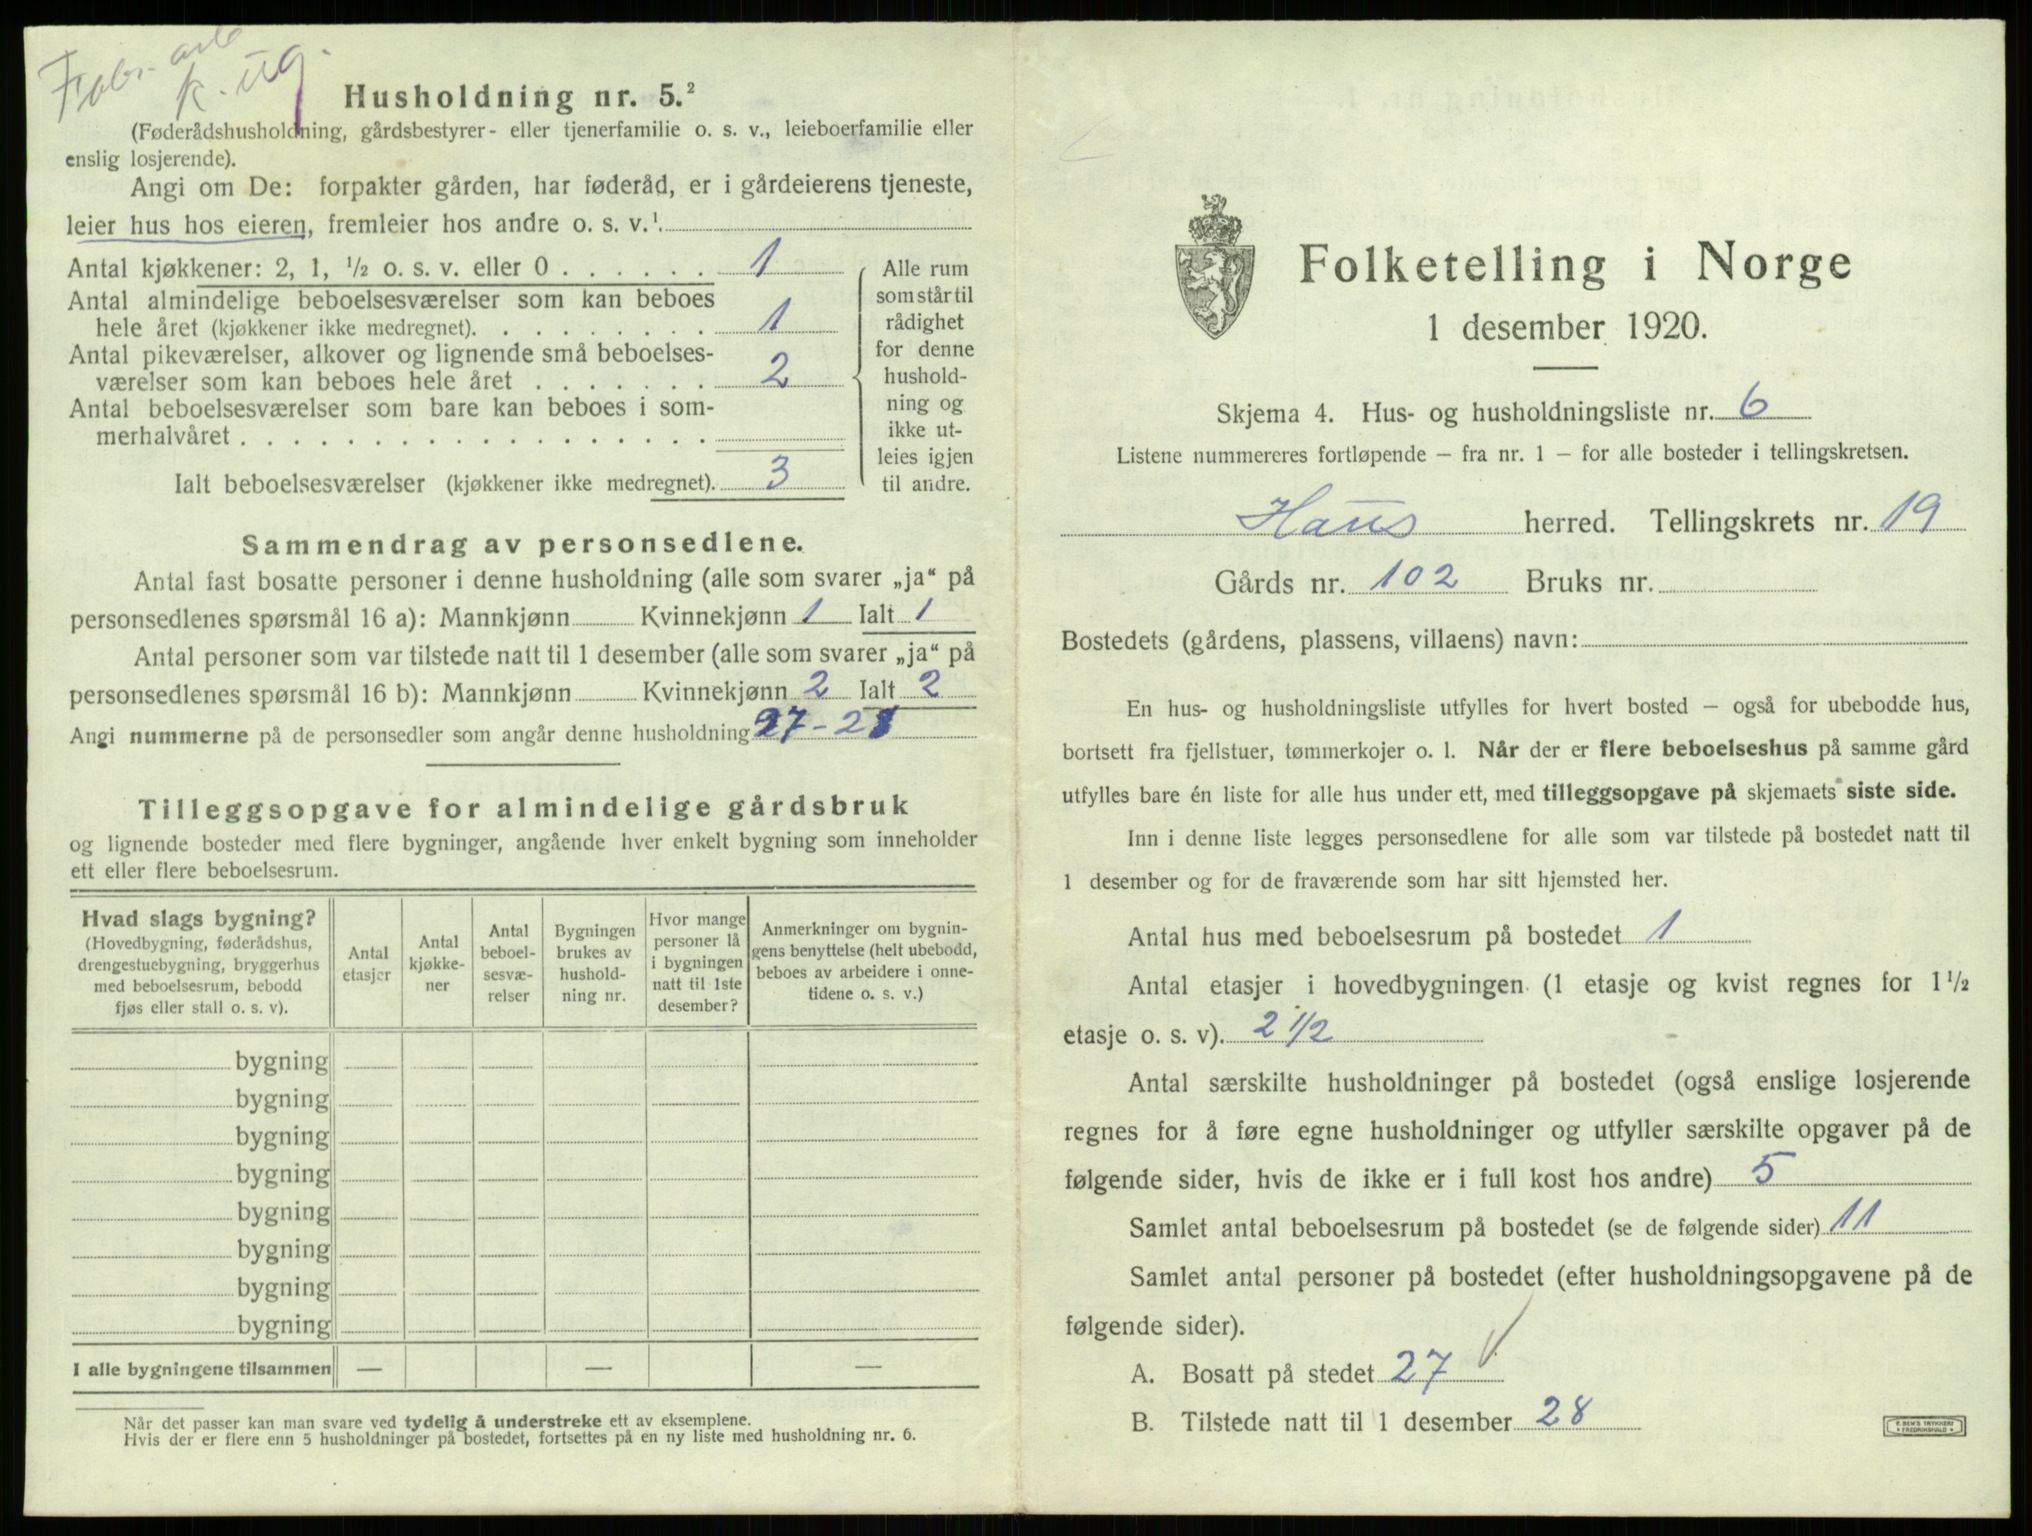 Fabr. arb
k. ug.
Husholdning nr. 5.²
(Føderådshusholdning, gårdsbestyrer- eller tjenerfamilie o. s. v., leieboerfamilie eller
enslig losjerende).
Angi om De: forpakter gården, har føderåd, er i gårdeierens tjeneste,
leier hus hos eieren, fremleier hos andre o. s. v.¹
Antal kjøkkener: 2, 1, ½ o. s. v. eller 0 . . . . . . 1
Antal almindelige beboelsesværelser som kan beboes
hele året (kjøkkener ikke medregnet). . . . . . . . . 1
Antal pikeværelser, alkover og lignende små beboelses-
værelser som kan beboes hele året . . . . . . . 2
Antal beboelsesværelser som bare kan beboes i som-
merhalvåret . . . . . . . . . . . . . . . . . .
Ialt beboelsesværelser (kjøkkener ikke medregnet). 3
Alle rum
som står til
rådighet
for denne
hushold-
ning og
ikke ut-
leies igjen
til andre.
Sammendrag av personsedlene.
Antal fast bosatte personer i denne husholdning (alle som svarer „ja“ på
personsedlenes spørsmål 16 a): Mannkjønn Kvinnekjønn 1 Ialt 1
Antal personer som var tilstede natt til 1 desember (alle som svarer „ja“ på
personsedlenes spørsmål 16 b): Mannkjønn Kvinnekjønn 2 Ialt 2
Angi nummerne på de personsedler som angår denne husholdning 27-28
Tilleggsopgave for almindelige gårdsbruk
og lignende bosteder med flere bygninger, angående hver enkelt bygning som inneholder
ett eller flere beboelsesrum.
Hvad slags bygning?
(Hovedbygning, føderådshus,
drengestuebygning, bryggerhus
med beboelsesrum, bebodd
fjøs eller stall o. s. v).
Antal
etasjer
Antal
kjøkke-
ner
Antal
beboel-
sesvæ-
relser
Bygningen
brukes av
hushold-
ning nr.
Hvor mange
personer lå
i bygningen
natt til 1ste
desember?
Anmerkninger om bygnin-
gens benyttelse (helt ubebodd,
beboes av arbeidere i onne-
tidene o. s. v.)
bygning
bygning
bygning
bygning
bygning
bygning
bygning
bygning
I alle bygningene tilsammen — — —
Når det passer kan man svare ved tydelig å understreke ett av eksemplene.
Hvis der er flere enn 5 husholdninger på bostedet, fortsettes på en ny liste med husholdning nr. 6.
Folketelling i Norge
1 desember 1920.
Skjema 4. Hus- og husholdningsliste nr. 6
Listene nummereres fortløpende — fra nr. 1 — for alle bosteder i tellingskretsen.
Haus herred. Tellingskrets nr. 19
Gårds nr. 102 Bruks nr.
Bostedets (gårdens, plassens, villaens) navn:
En hus- og husholdningsliste utfylles for hvert bosted — også for ubebodde hus,
bortsett fra fjellstuer, tømmerkojer o. l. Når der er flere beboelseshus på samme gård
utfylles bare én liste for alle hus under ett, med tilleggsopgave på skjemaets siste side.
Inn i denne liste legges personsedlene for alle som var tilstede på bostedet natt til
1 desember og for de fraværende som har sitt hjemsted her.
Antal hus med beboelsesrum på bostedet 1
Antal etasjer i hovedbygningen (1 etasje og kvist regnes for 1½
etasje o. s. v). 2 1/2
Antal særskilte husholdninger på bostedet (også enslige losjerende
regnes for å føre egne husholdninger og utfyller særskilte opgaver på de
følgende sider, hvis de ikke er i full kost hos andre) 5
Samlet antal beboelsesrum på bostedet (se de følgende sider) 11
Samlet antal personer på bostedet (efter husholdningsopgavene på de
følgende sider).
A. Bosatt på stedet 27
B. Tilstede natt til 1 desember 28